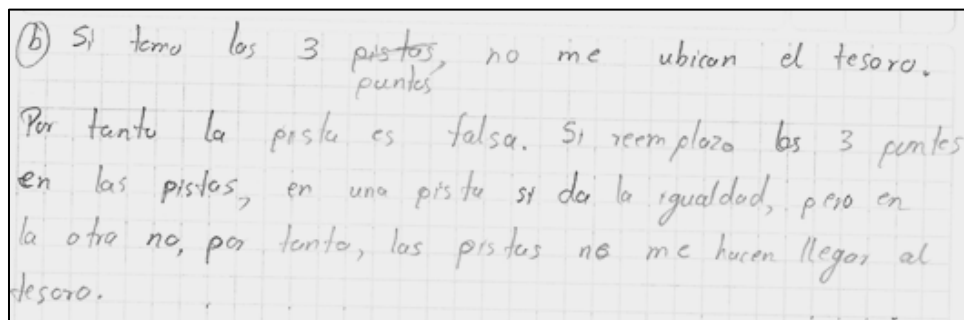 ⓑ Si tomo los 3 pistas, no me ubican el tesoro.
puntos
Por tanto la pista es falsa. Si reemplazo los 3 puntos
en las pistas, en una pista si da la igualdad, pero en
la otra no, por tanto, las pistas no me hacen llegar al
tesoro.